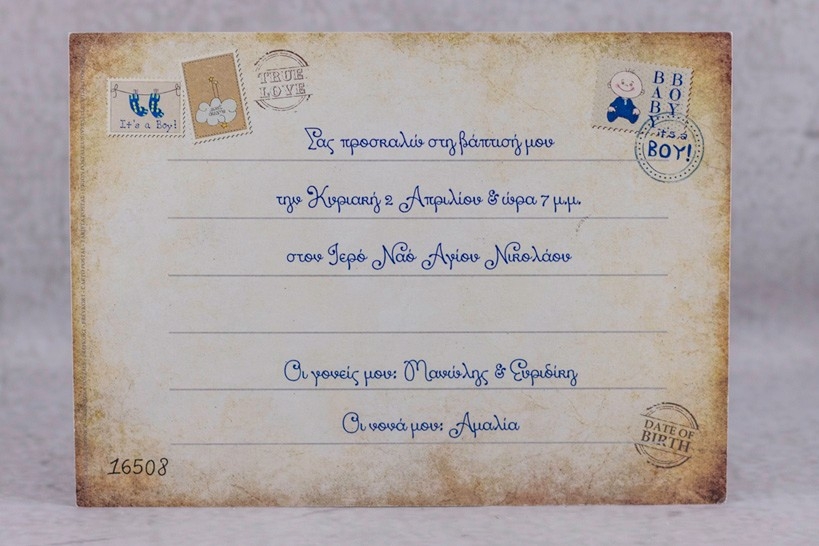 TRUE
LOVE
It's a Boy!
BABY BOY
it's a
BOY!
Σας προσκαλώ στη βάπτισή μου
την Κυριακή 2 Απριλίου & ώρα 7 μ.μ.
στον Ιερό Ναό Αγίου Νικολάου
Οι γονείς μου: Μανώλης & Ευριδίκη
Οι νονά μου: Αμαλία
DATE OF
BIRTH
16508